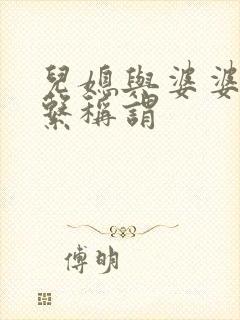 兒媳與婆婆
繫稱謂
傅明